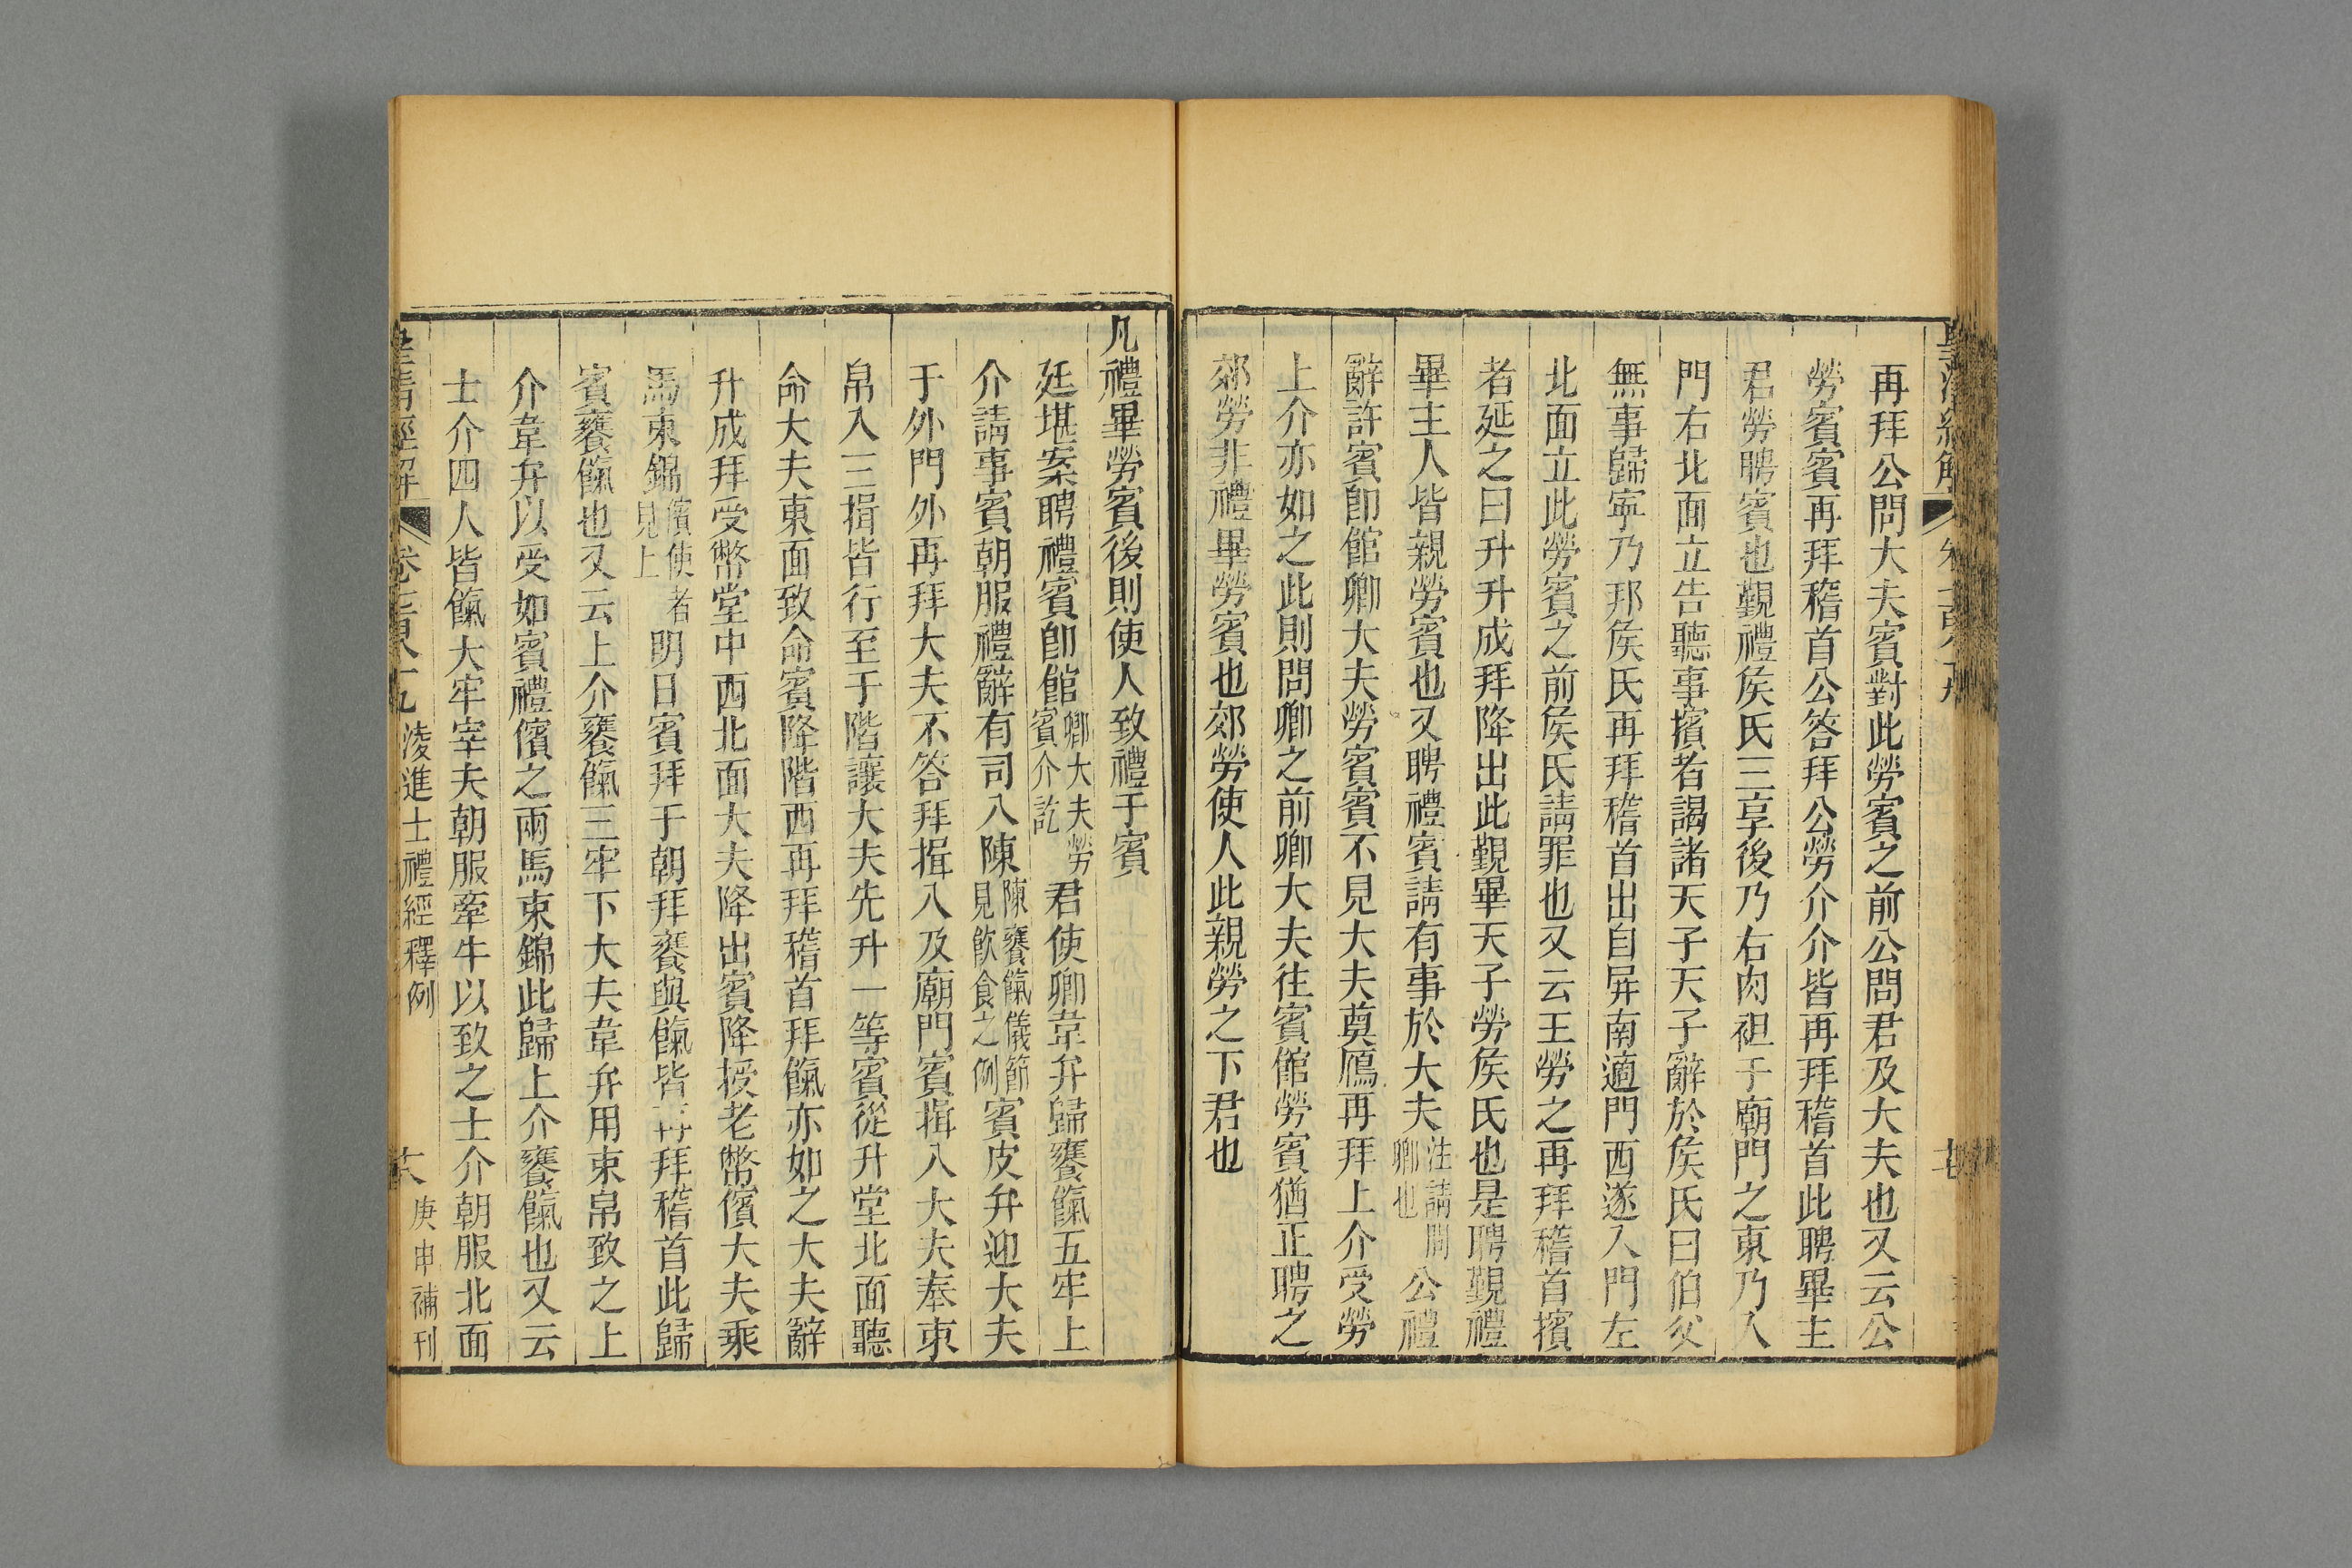 再拜公問大夫賓對此勞賓之前公問君及大夫也又云公
勞賓賓再拜稽首公答拜公勞介介皆再拜稽首此聘畢主
君勞聘賓也覲禮侯氏三享後乃右肉袒于廟門之東乃入
門右北面立告聽事擯者謁諸天子天子辭於侯氏曰伯父
無事歸寧乃邦侯氏再拜稽首出自屏南適門西遂入門左
北面立此勞賓之前侯氏請罪也又云王勞之再拜稽首擯
者延之曰升升成拜降出此覲畢天子勞侯氏也是聘覲禮
畢主人皆親勞賓也又聘禮賓請有事於大夫注請問卿也公禮
辭許賓卽館卿大夫勞賓賓不見大夫奠鴈再拜上介受勞
上介亦如之此則問卿之前卿大夫往賓館勞賓猶正聘之
郊勞非禮畢勞賓也郊勞使人此親勞之下君也
凡禮畢勞賓後則使人致禮于賓
廷堪案聘禮賓卽館卿大夫勞賓介訖君使卿韋弁歸饔餼五牢上
介請事賓朝服禮辭有司入陳陳饔餼儀節見飮食之例賓皮弁迎大夫
于外門外再拜大夫不答拜揖入及廟門賓揖入大夫奉束
帛入三揖皆行至于階讓大夫先升一等賓從升堂北面聽
命大夫東面致命賓降階西再拜稽首拜餼亦如之大夫辭
升成拜受幣堂中西北面大夫降出賓降授老幣儐大夫乘
馬束錦儐使者見上明日賓拜于朝拜饔與餼皆再拜稽首此歸
賓饔餼也又云上介饔餼三牢下大夫韋弁用束帛致之上
介韋弁以受如賓禮儐之兩馬束錦此歸上介饔餼也又云
士介四人皆餼大牢宰夫朝服牽牛以致之士介朝服北面
皇清經解 卷七百八十九 淩進士禮經釋例 十八 庚申補刊